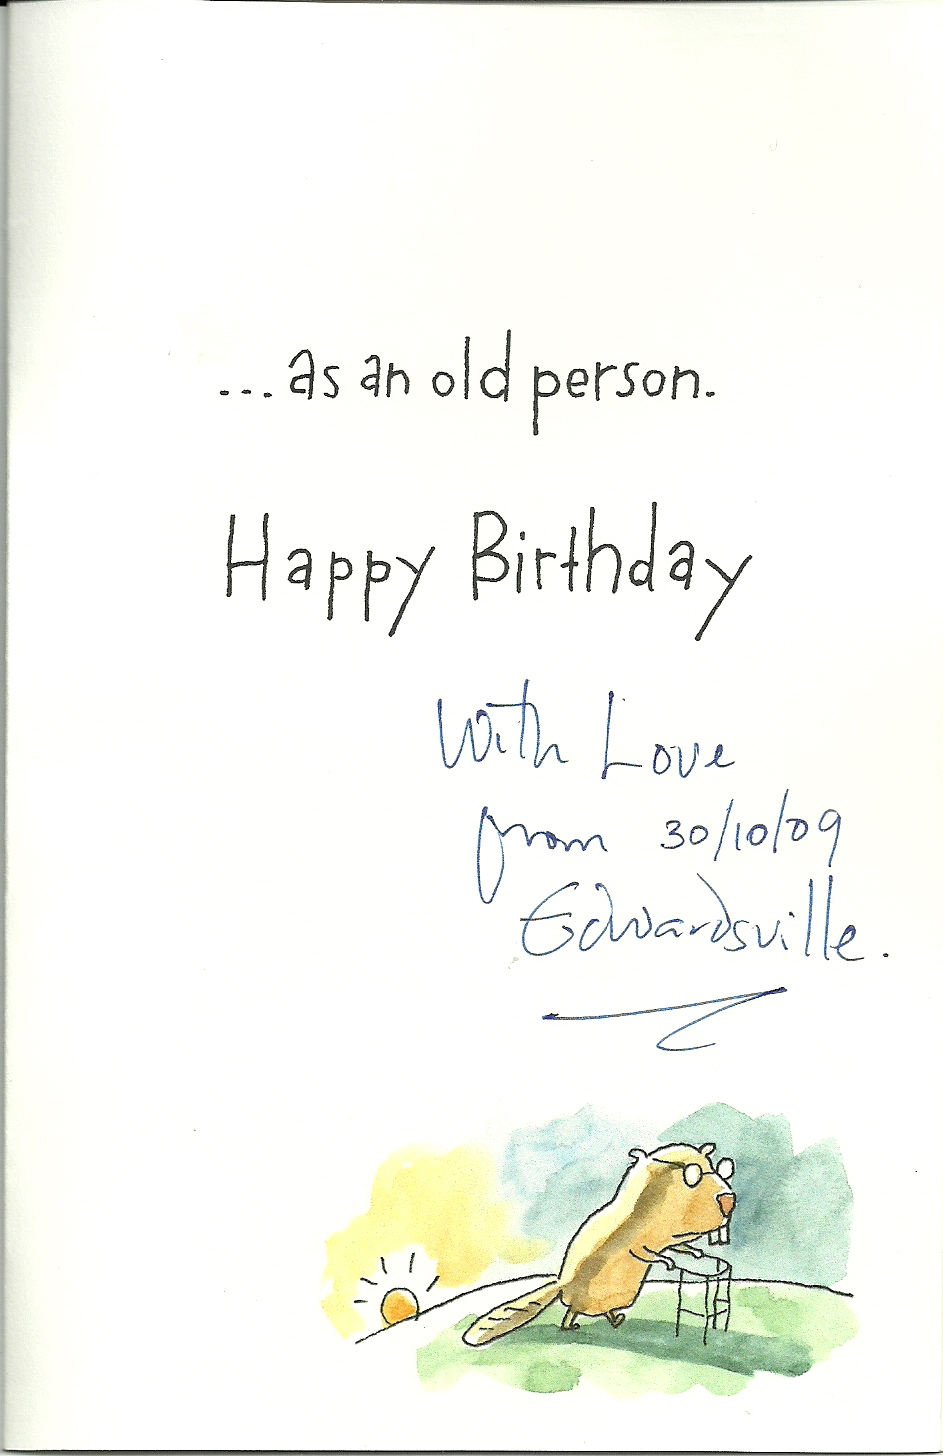 ...as an old person.
Happy Birthday
With Love
from 30/10/09
Edwardsville.